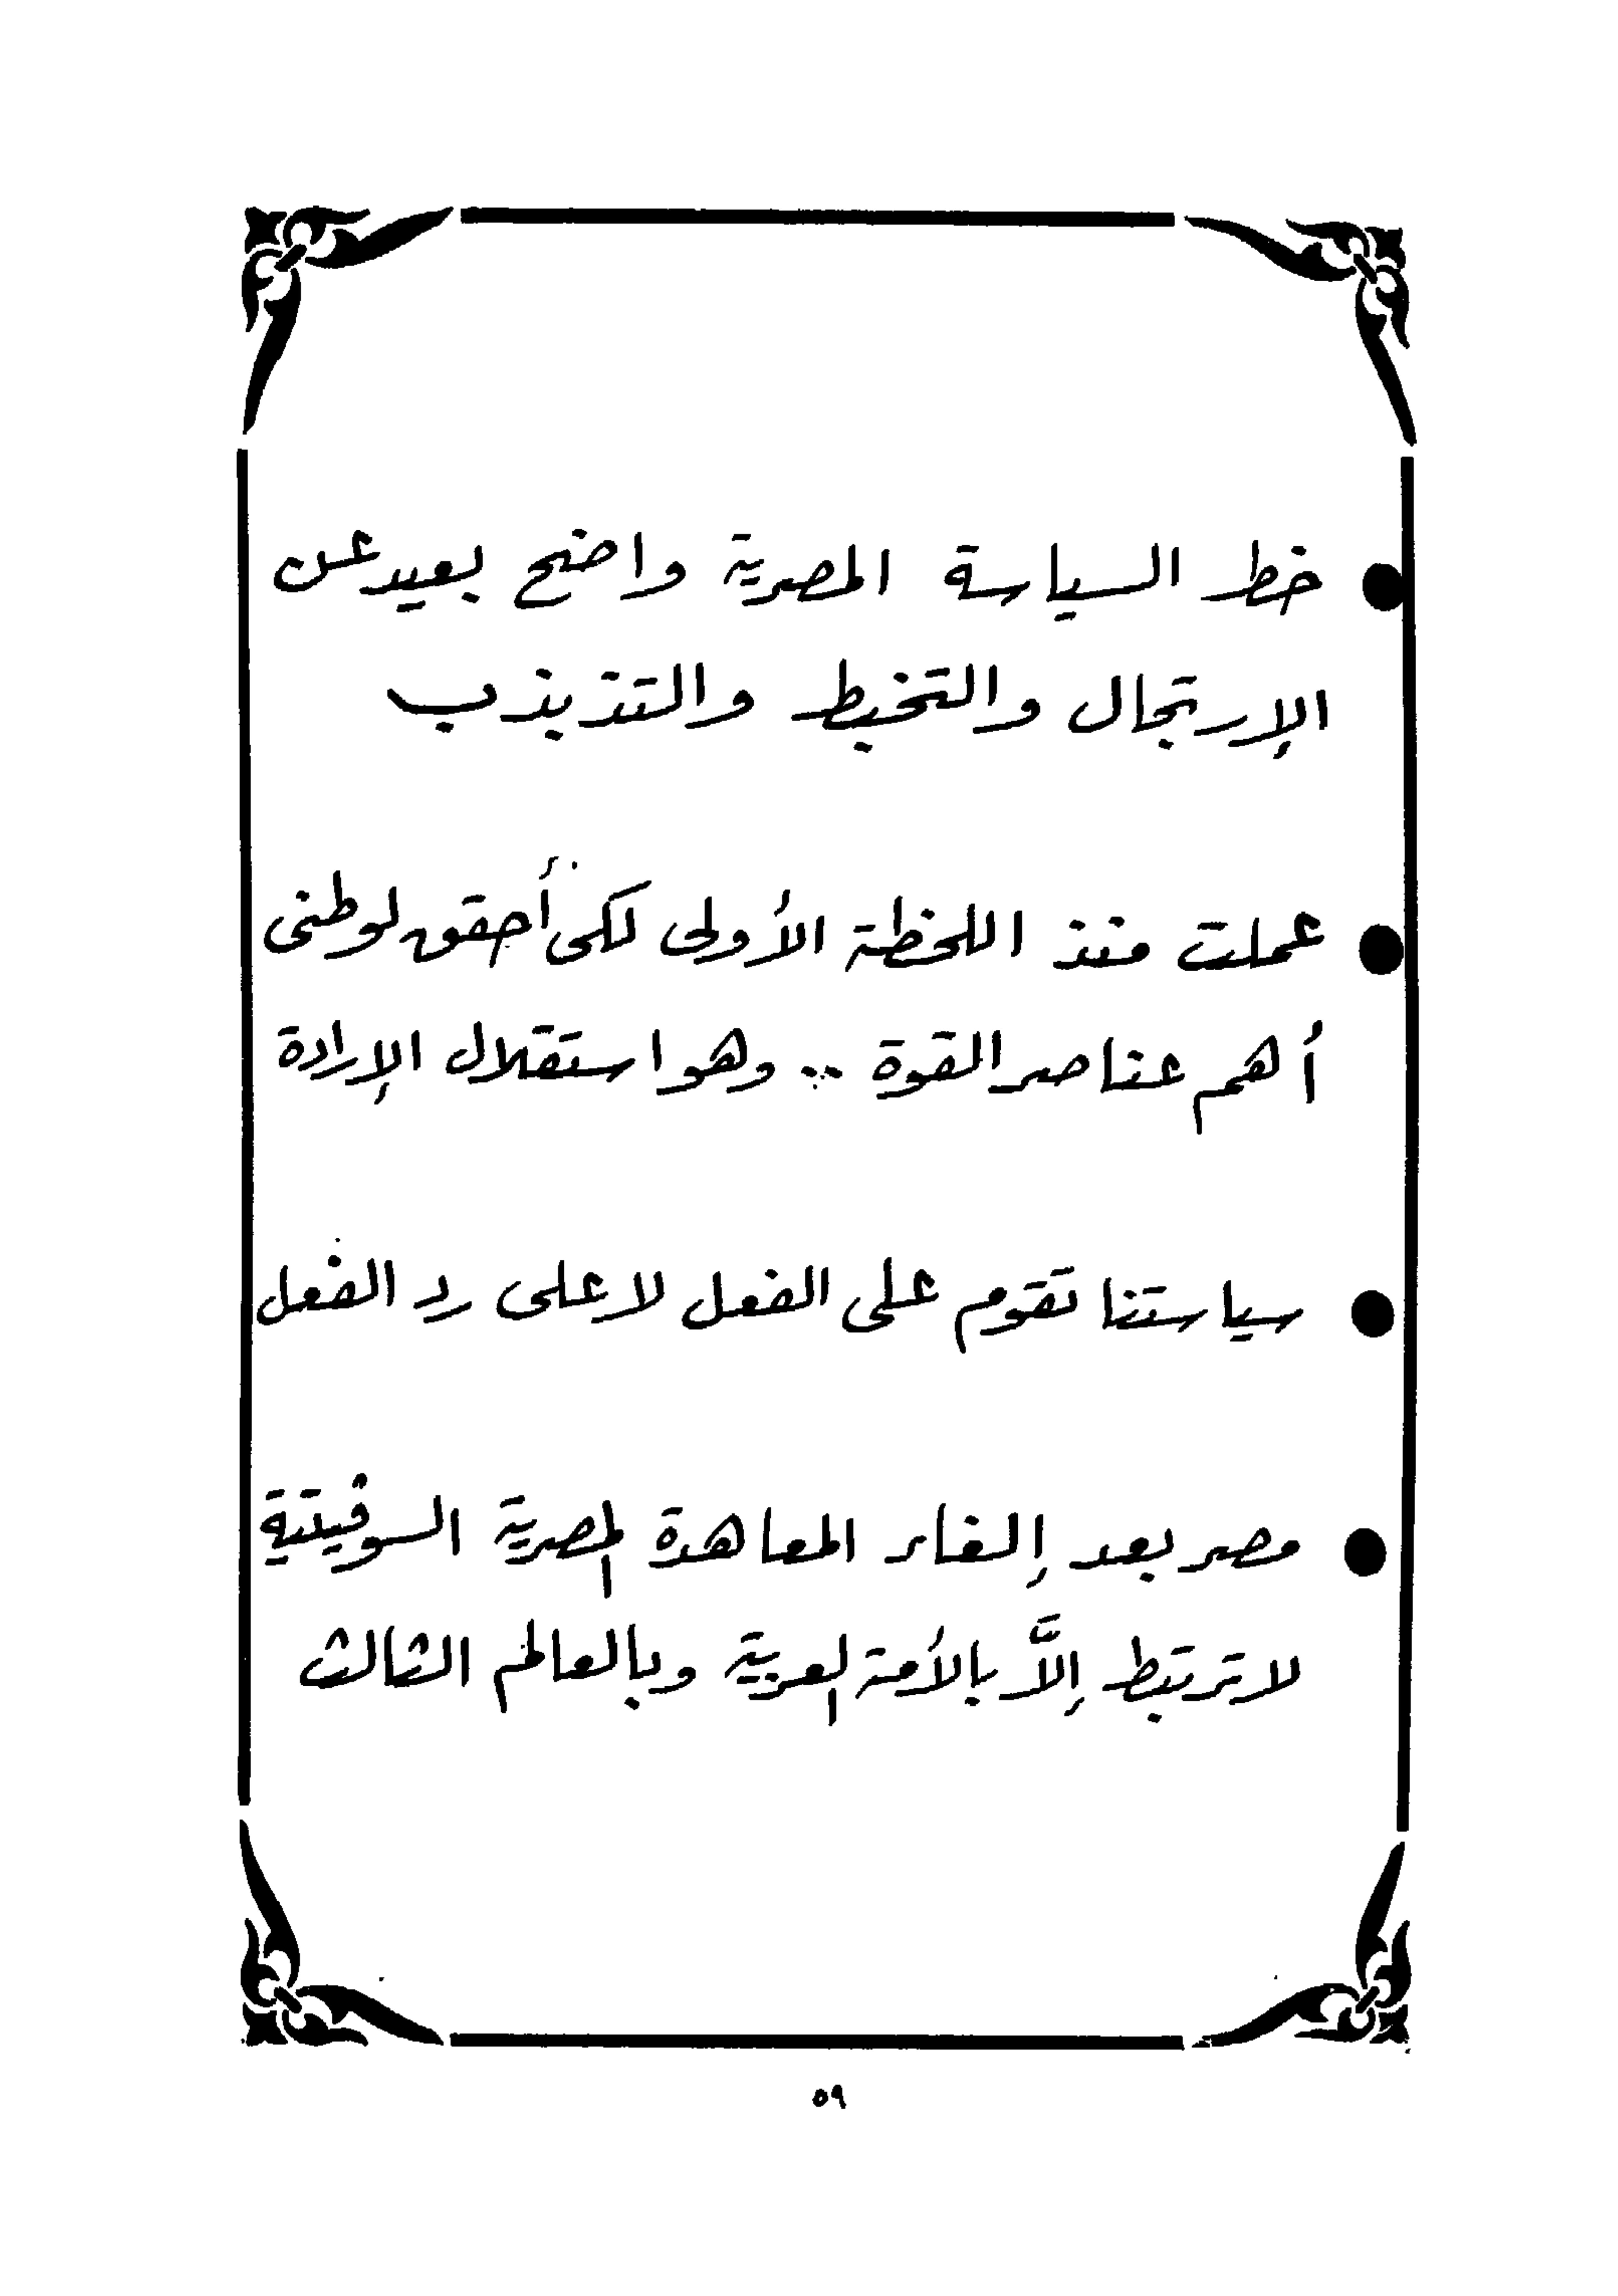 ● خط السياسة المصرية واضح بعيد عن
الإرتجال والتخبط والتذبذب
● عملت منذ اللحظة الأولى لكى أحقق لوطنى
أهم عناصر القوة .. وهو استقلال الإرادة
● سياستنا تقوم على الفعل لا على رد الفعل
● مصر بعد إلغاء المعاهدة المصرية السوفيتية
لا ترتبط إلاَّ بالأمة العربية وبالعالم الثالث
٥٩